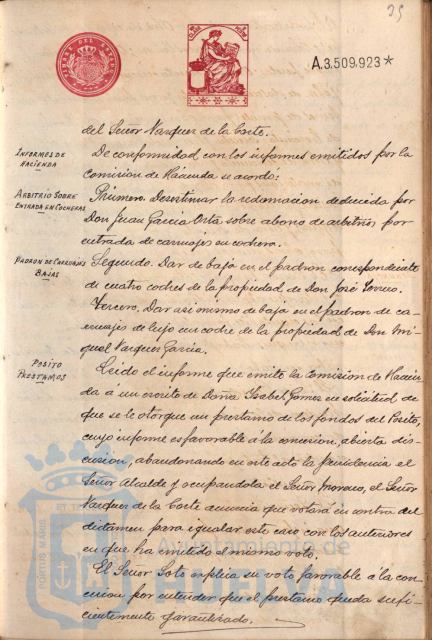 25
TIMBRE DEL ESTADO
A.3.509.923*
del Señor Vazquez de la Corte.
INFORMES DE HACIENDA
De conformidad con los informes emitidos por la
Comision de Hacienda se acordó:
ARBITRIO SOBRE ENTRADA EN COCHERAS
Primero. Desestimar la reclamacion deducida por
Don Juan Garcia Orta sobre abono de arbitrios por
entrada de carruajes en cochera.
PADRON DE CARRUAJES BAJAS
Segundo. Dar de baja en el padron correspondiente
de cuatro coches de la propiedad de Don José
Tercero. Dar asi mismo de baja en el padron de ca-
rruajes de lujo un coche de la propiedad de Don Mi-
guel Vazquez Garcia.
POSITO PRESTAMOS
Leido el informe que emite la Comision de Hacien-
da á un escrito de Doña Isabel Gomez en solicitud de
que se le otorgue un prestamo de los fondos del Posito,
cuyo informe es favorable á la concesion, abierta dis-
cusion, abandonando en este acto la presidencia el
Señor Alcalde y ocupandola el Señor Moreno, el Señor
Vazquez de la Corte anuncia que votará en contra del
dictámen para igualar este caso con los anteriores
en que ha emitido el mismo voto.
El Señor Soto explica su voto favorable á la con-
cesion por entender que el prestamo queda sufi-
cientemente garantizado.
Ayuntamiento de
HUELVA